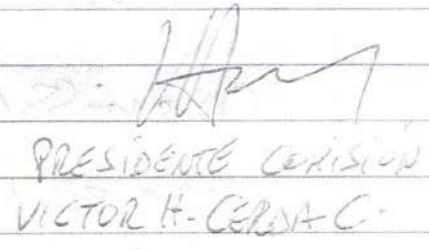 PRESIDENTE COMISIÓN
VICTOR H. CERDA C.